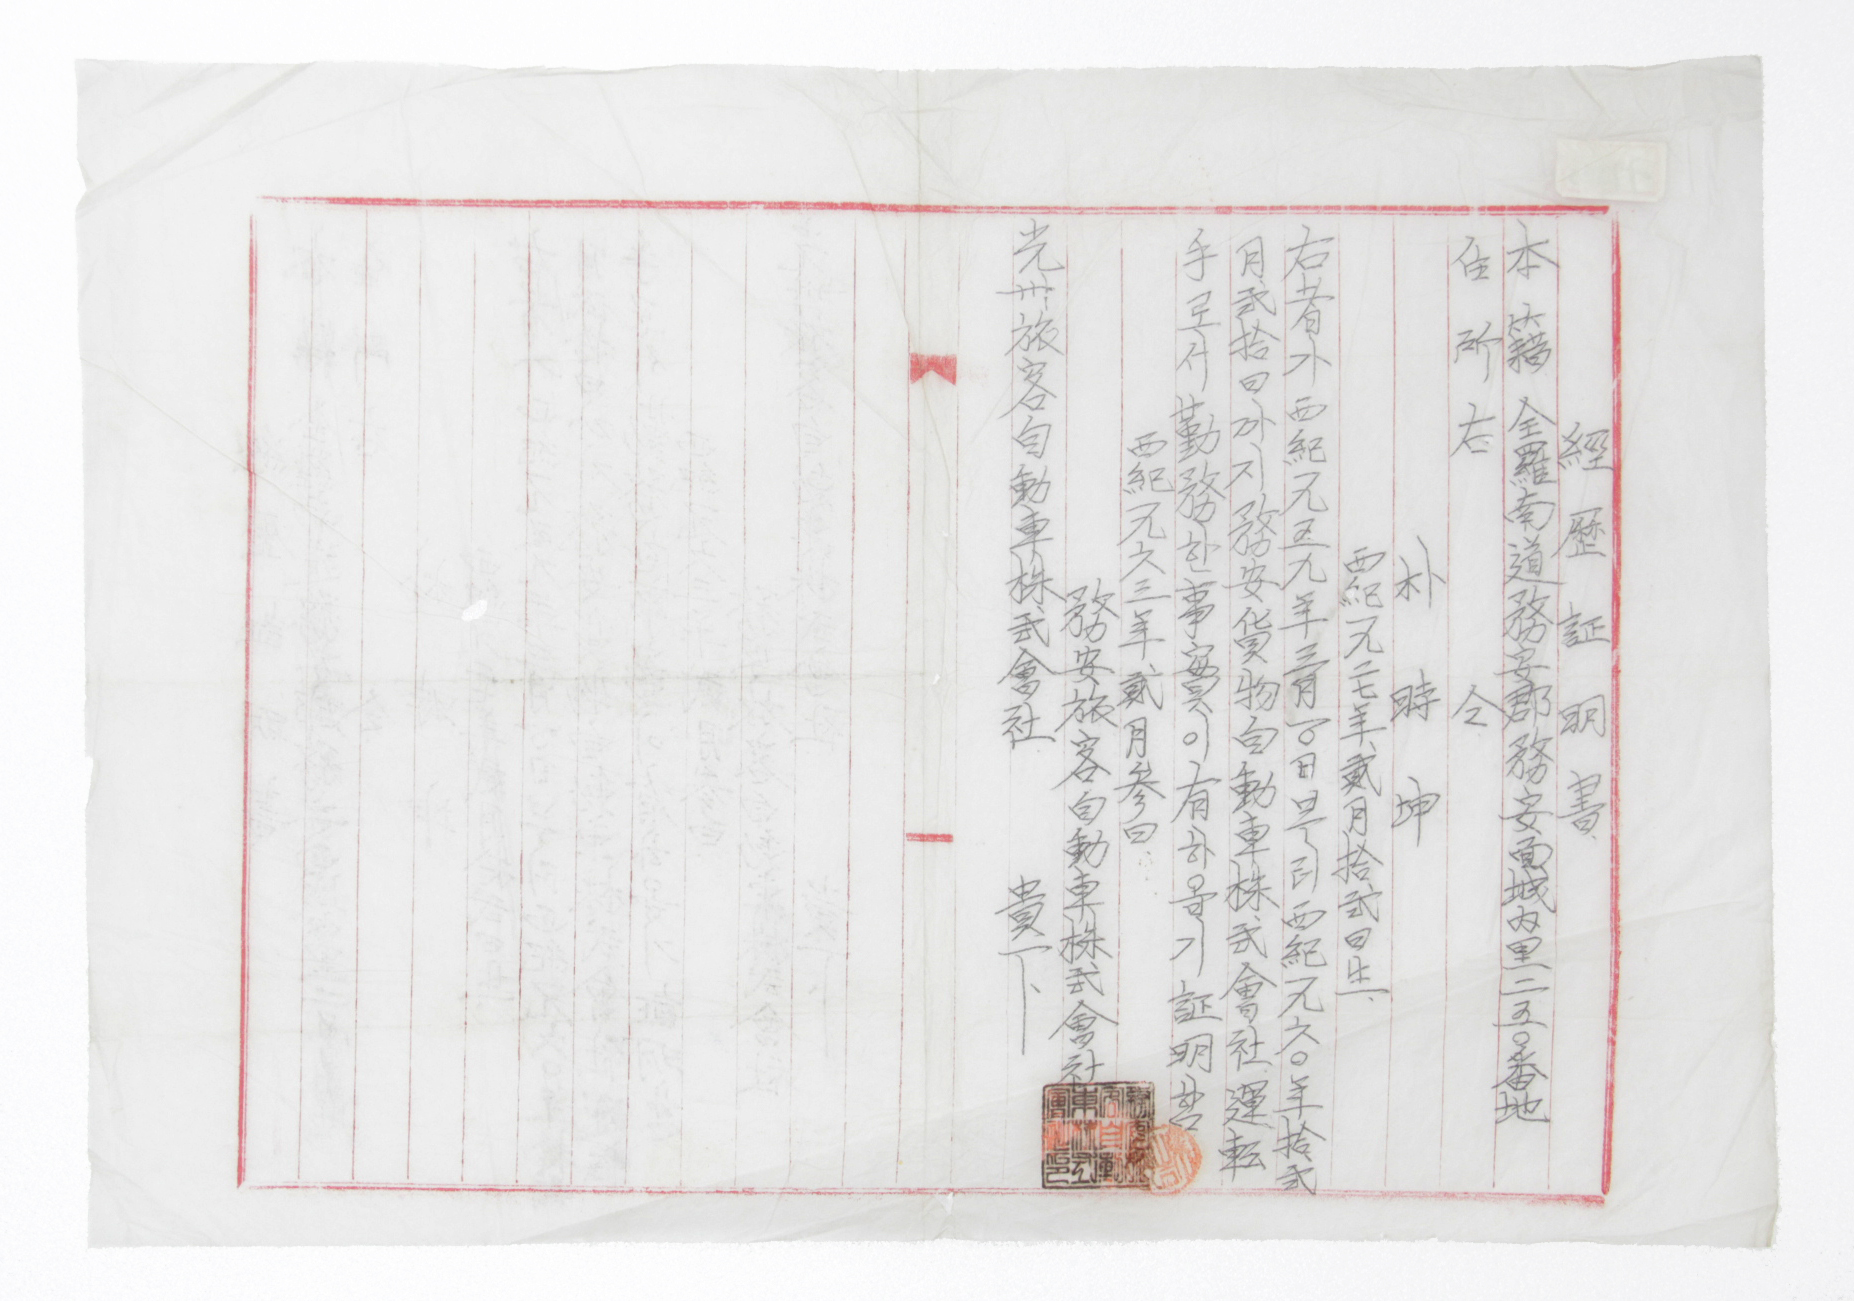 經歷証明書
本籍 全羅南道務安郡務安面城內里二五〇番地
住所 右 仝
朴時坤
西紀一九二七年貳月拾貳日生
右者가 西紀一九五九年三月一〇日브터 西紀一九六〇年拾貳
月貳拾日까지 務安貨物自動車株式會社 運転
手로서 勤務한 事實이 有하옵기 証明함
西紀一九六三年貳月參日
務安旅客自動車株式會社
光州旅客自動車株式會社 貴下